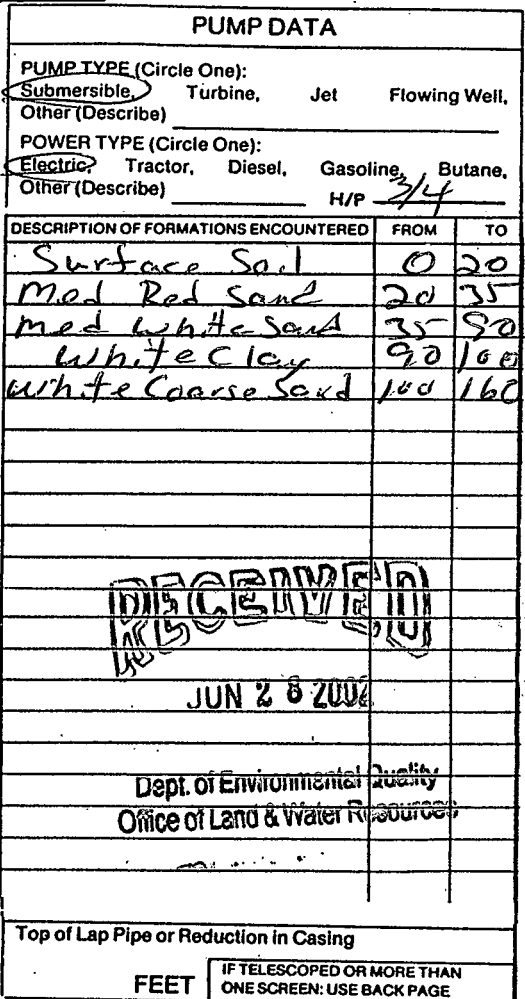 PUMP DATA
PUMP TYPE (Circle One):
Submersible, Turbine, Jet Flowing Well,
Other (Describe)
POWER TYPE (Circle One):
Electric, Tractor, Diesel, Gasoline, Butane,
Other (Describe) H/P 3/4
DESCRIPTION OF FORMATIONS ENCOUNTERED FROM TO
Surface Soil 0 20
Med Red Sand 20 35
med White Sand 35 90
White Clay 90 100
White Coarse Sand 100 160
RECEIVED
JUN 2 8 2002
Dept. of Environmental Quality
Office of Land & Water Resources
Top of Lap Pipe or Reduction in Casing
FEET IF TELESCOPED OR MORE THAN
ONE SCREEN: USE BACK PAGE